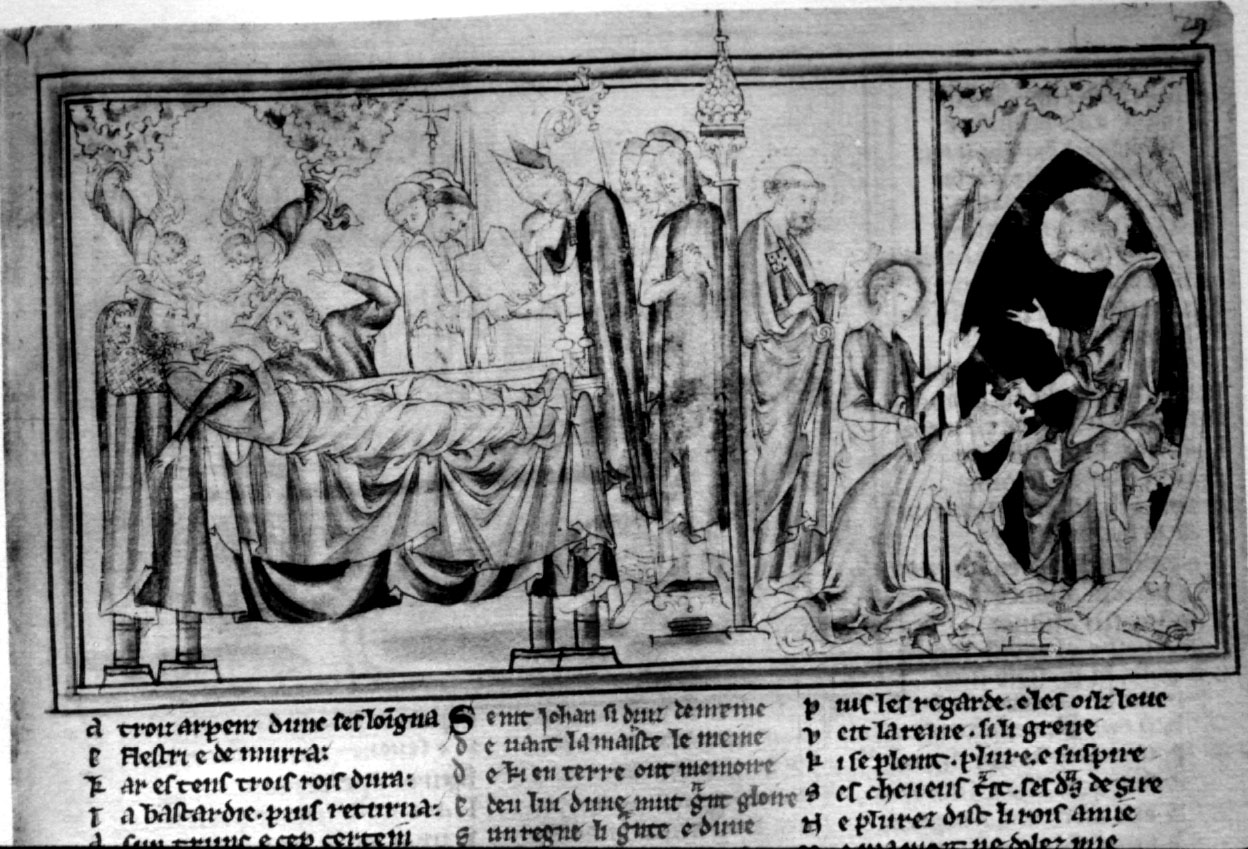 29
A trois arpenz dune ses loigna
E flestri e de murra:
K ar es tens trois rois dura:
L a bastardie. puis returna:
A sun trunc e cep certein
S eint Johan si duiz demeine
D e vant la maiste le meine
D e ki en terre out memoire
E deu lui dune mut gnt gloire
S un regne li gnte e dune
P uis les regarde. e les oilz leve
V eit la reine. si li greve
K i se pleint. plure. e suspire
S es cheveus t. ses d de sire
N e plurez dist li rois amie
ne dolez mie